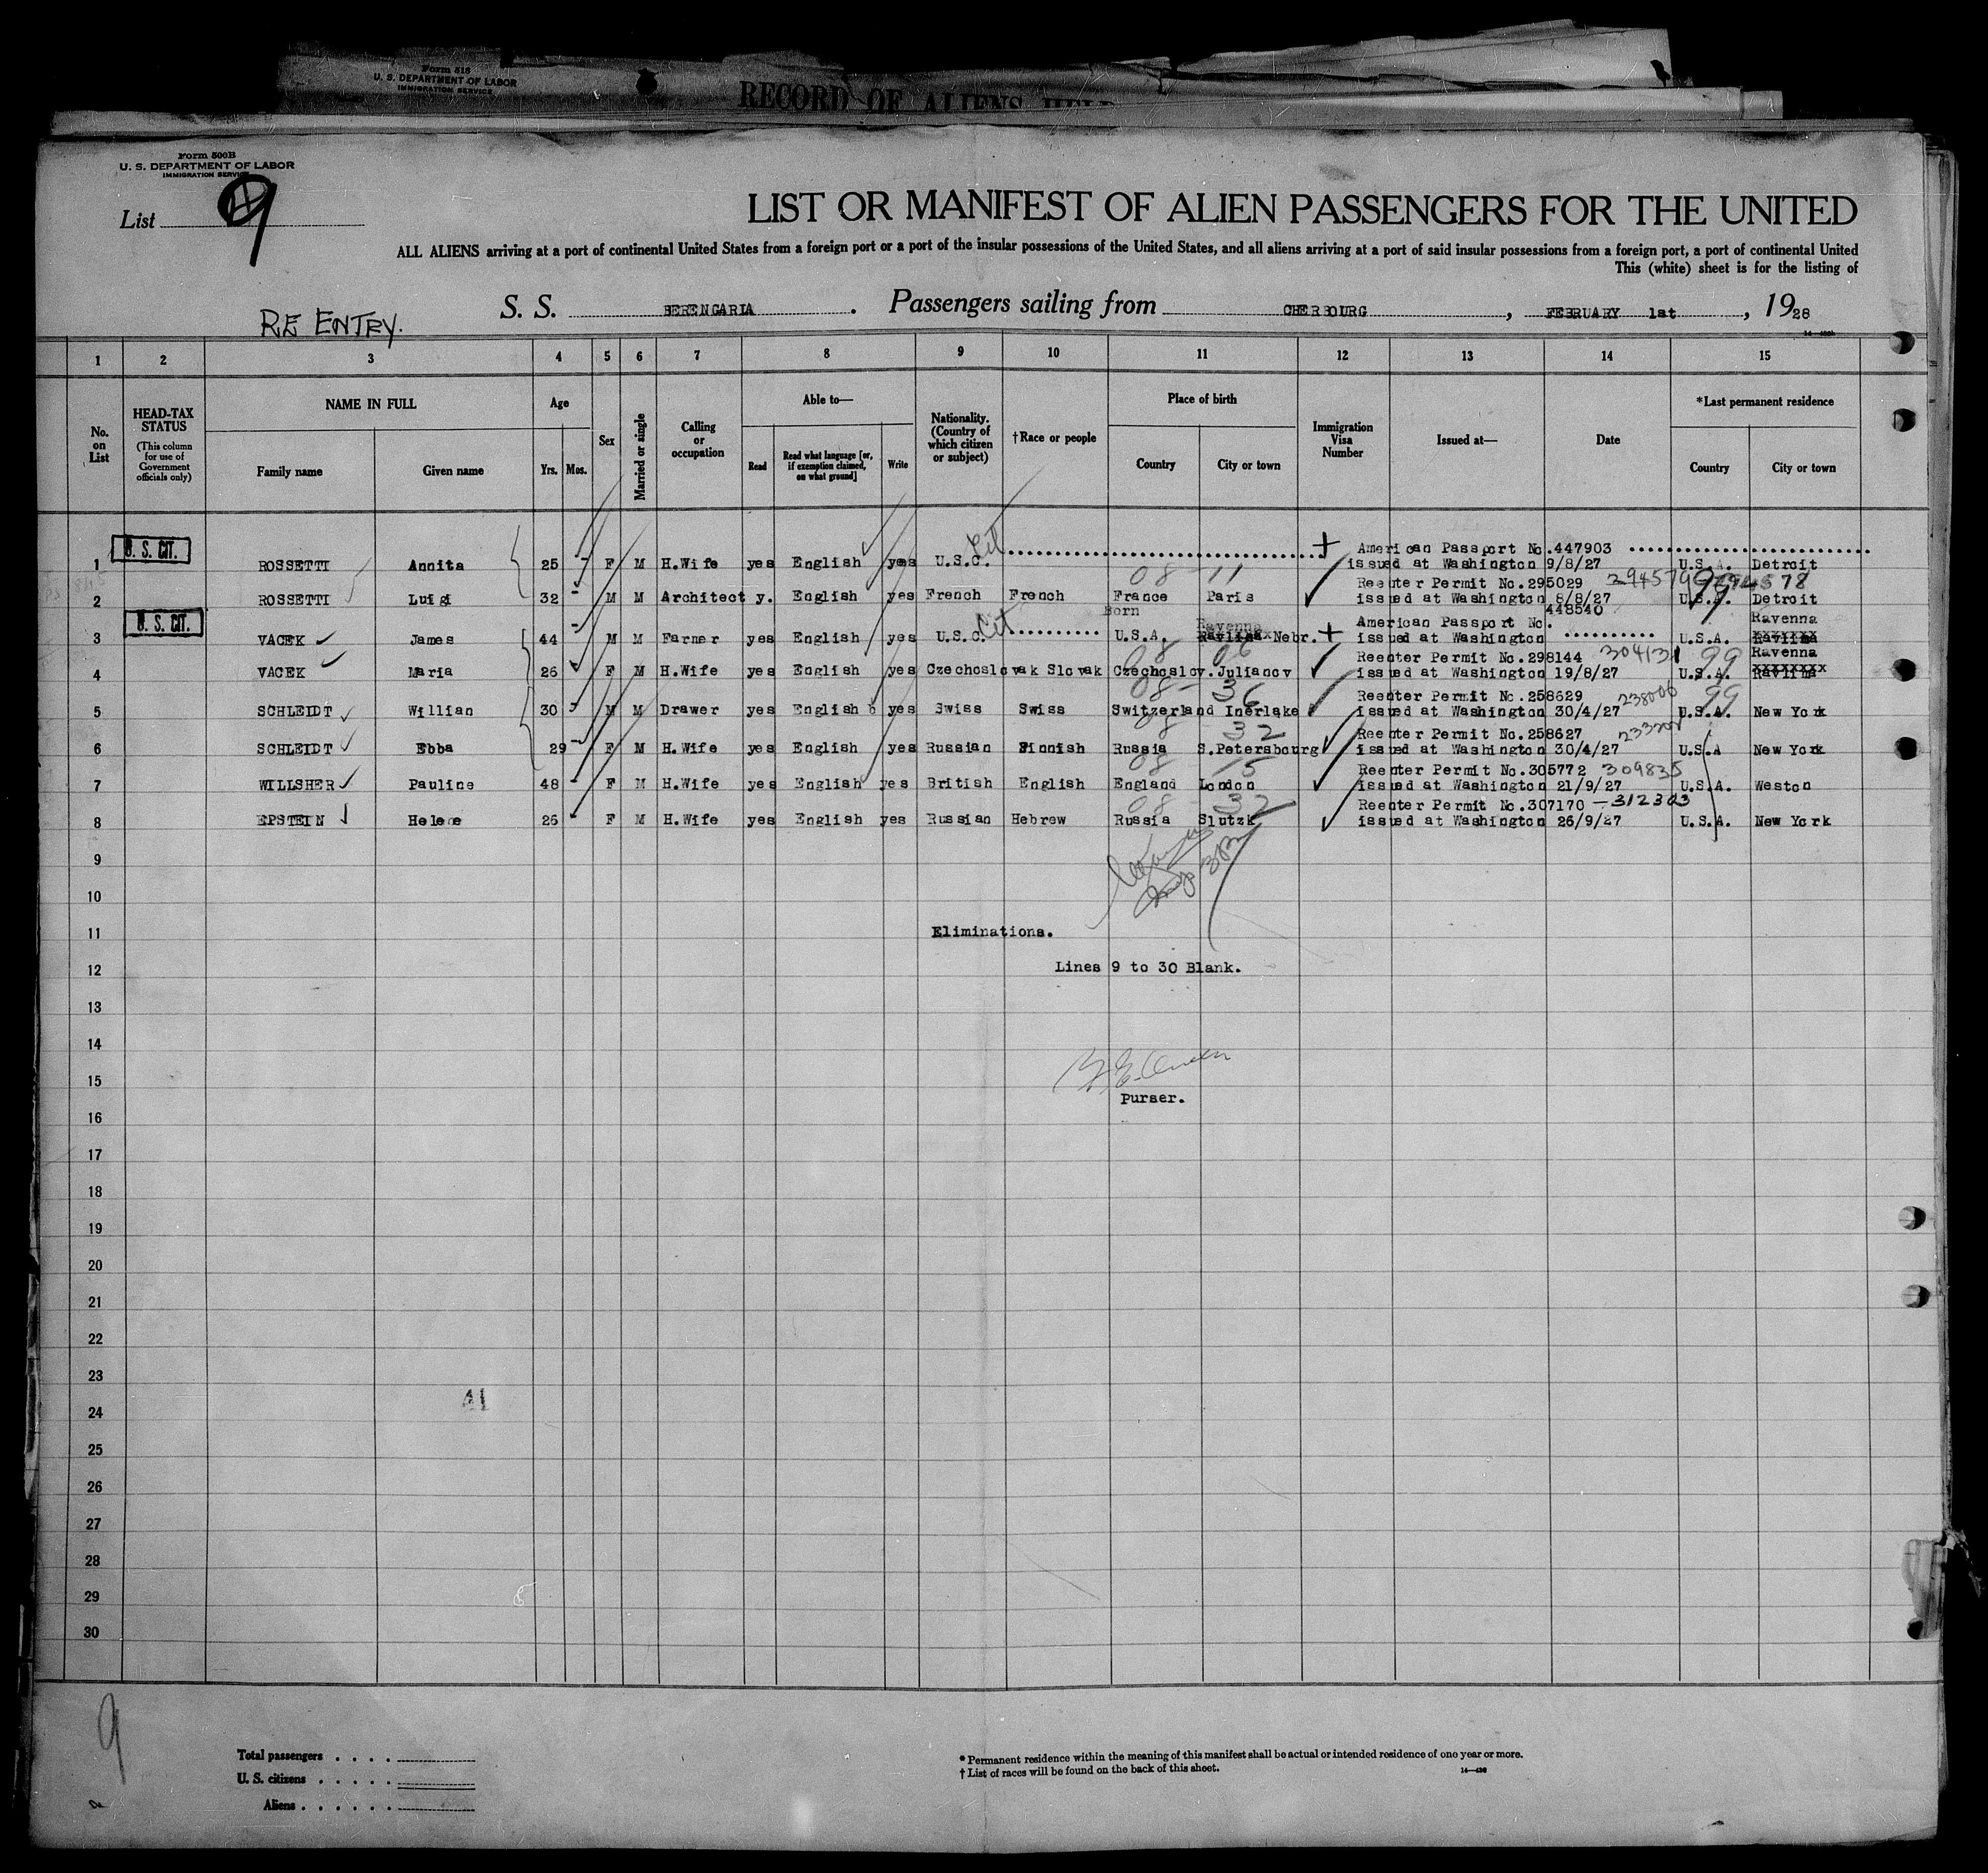 Form 518
U. S. DEPARTMENT OF LABOR
IMMIGRATION SERVICE
RECORD OF ALIENS HELD
Form 500B
U. S. DEPARTMENT OF LABOR
IMMIGRATION SERVICE
List 9
LIST OR MANIFEST OF ALIEN PASSENGERS FOR THE UNITED
ALL ALIENS arriving at a port of continental United States from a foreign port or a port of the insular possessions of the United States, and all aliens arriving at a port of said insular possessions from a foreign port, a port of continental United
This (white) sheet is for the listing of
RE ENTRY. S. S. BERENGARIA. Passengers sailing from CHERBOURG, FEBRUARY 1st, 1928
1 2 3 4 5 6 7 8 9 10 11 12 13 14 15
No. on List HEAD-TAX STATUS (This column for use of Government officials only) NAME IN FULL Family name Given name Age Yrs. Mos. Sex Married or single Calling or occupation Able to— Read Read what language [or, if exemption claimed, on what ground] Write Nationality. (Country of which citizen or subject) †Race or people Place of birth Country City or town Immigration Visa Number Issued at— Date *Last permanent residence Country City or town
American Passport No.447903
1 U. S. CIT. ROSSETTI Annita 25 F M H.Wife yes English yes U.S.C. Cit issued at Washington 9/8/27 U.S.A. Detroit
08 11 Reenter Permit No.295029 294579 294578
2 ROSSETTI Luigi 32 M M Architect y. English yes French French France Paris issued at Washington 8/8/27 U.S.A. Detroit 99
Born Ravenna American Passport No. 448540 Ravenna
3 U. S. CIT. VACEK James 44 M M Farmer yes English yes U.S.C. Cit U.S.A. Nebr. issued at Washington U.S.A.
08 06 Reenter Permit No.298144 304131 99 Ravenna
4 VACEK Maria 26 F M H.Wife yes English yes Czechoslovak Slovak Czechoslov. Julianov issued at Washington 19/8/27 U.S.A.
08- 36 Reenter Permit No.258629 238006 99
5 SCHLEIDT Willian 30 M M Drawer yes English yes Swiss Swiss Switzerland Inerlake issued at Washington 30/4/27 U.S.A. New York
08 32 Reenter Permit No.258627
6 SCHLEIDT Ebba 29 F M H.Wife yes English yes Russian Finnish Russia S.Petersbourg issued at Washington 30/4/27 U.S.A New York
08 15 Reenter Permit No.305772 309835
7 WILLSHER Pauline 48 F M H.Wife yes English yes British English England London issued at Washington 21/9/27 U.S.A. Weston
08 - 32 Reenter Permit No.307170 - 312303
8 EPSTEIN Helene 26 F M H.Wife yes English yes Russian Hebrew Russia Slutzk issued at Washington 26/9/27 U.S.A. New York
9
10
11 Eliminations.
12 Lines 9 to 30 Blank.
13
14
15
Purser.
16
17
18
19
20
21
22
23
41
24
25
26
27
28
29
30
9
Total passengers
U. S. citizens
Aliens
* Permanent residence within the meaning of this manifest shall be actual or intended residence of one year or more.
† List of races will be found on the back of this sheet.